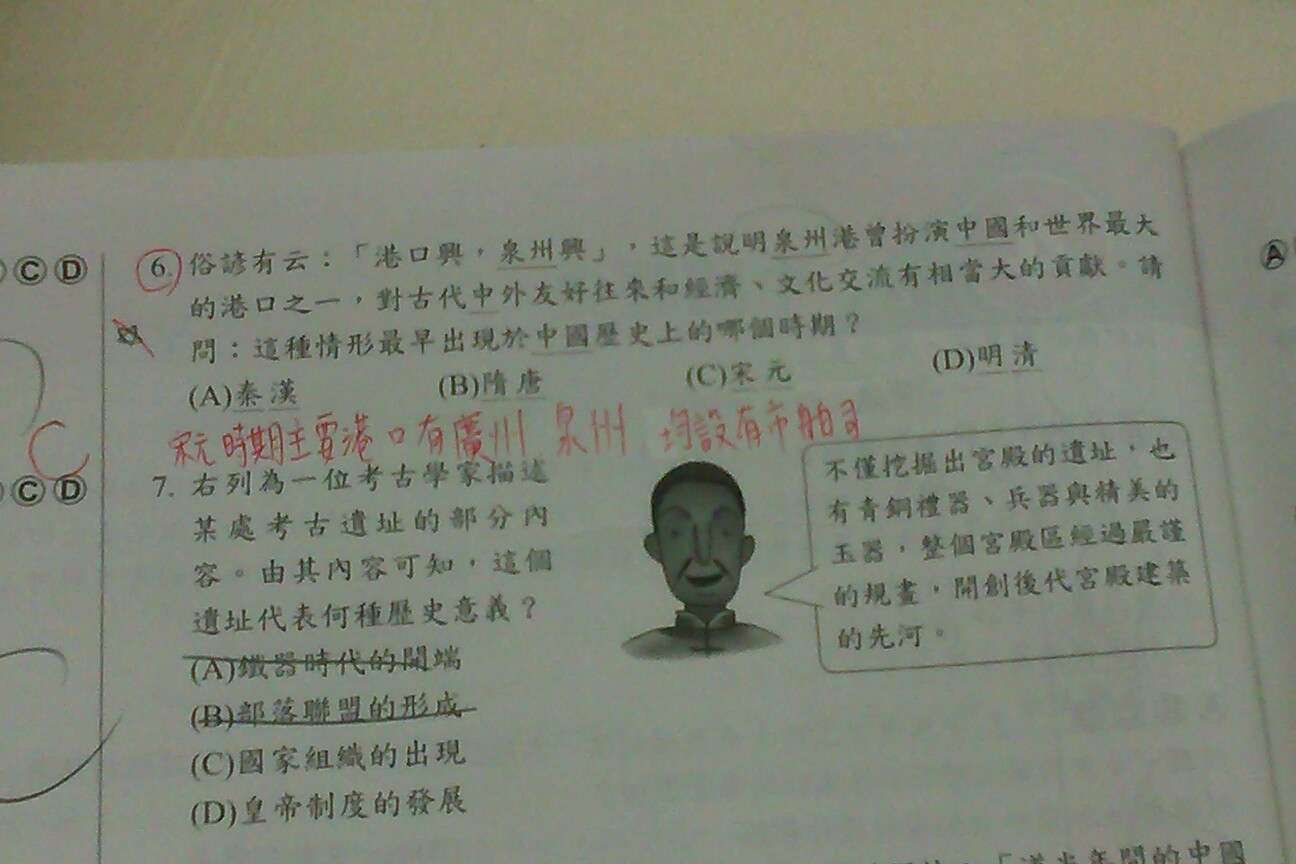 ⒸⒹ
6. 俗諺有云：「港口興，泉州興」，這是說明泉州港曾扮演中國和世界最大
的港口之一，對古代中外友好往來和經濟、文化交流有相當大的貢獻。請
問：這種情形最早出現於中國歷史上的哪個時期？
(A)秦漢 (B)隋唐 (C)宋元 (D)明清
宋元時期主要港口有廣州 泉州 均設有市舶司
C
ⒸⒹ
7. 右列為一位考古學家描述
某處考古遺址的部分內
容。由其內容可知，這個
遺址代表何種歷史意義？
(A)鐵器時代的開端
(B)部落聯盟的形成
(C)國家組織的出現
(D)皇帝制度的發展
不僅挖掘出宮殿的遺址，也
有青銅禮器、兵器與精美的
玉器，整個宮殿區經過嚴謹
的規畫，開創後代宮殿建築
的先河。
Ⓐ
年間的中國